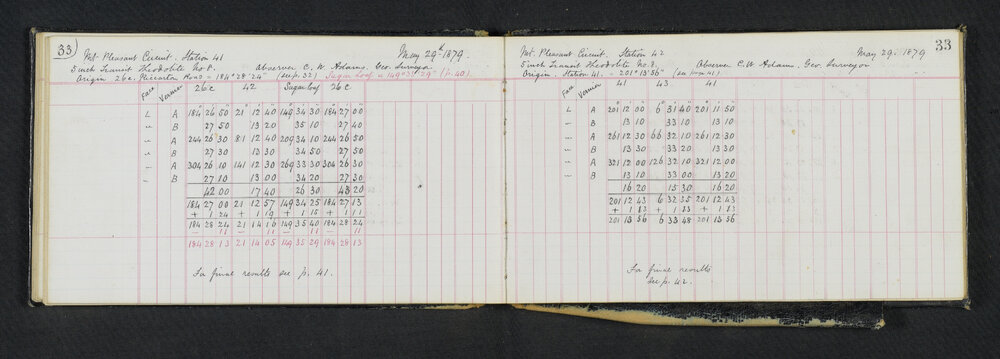 33
Mt. Pleasant Circuit. Station 41
May 29th 1879.
5 inch Transit Theodolite No 8.
Observer C. W. Adams. Geo. Surveyor
Origin 26c. Riccarton Road = 184° 28' 24" (see p. 32) Sugar Loaf = 149° 35' 29" (p. 40)
Face Vernier 26c 42 Sugarloaf 26c
L A 184 26 50 21 12 40 149 34 30 184 27 00
" B 27 50 13 20 35 10 27 40
" A 244 26 30 81 12 40 209 34 10 244 26 50
" B 27 30 13 30 34 50 27 50
" A 304 26 10 141 12 30 269 33 30 304 26 30
" B 27 10 13 00 34 20 27 30
42 00 17 40 26 30 43 20
184 27 00 21 12 57 149 34 25 184 27 13
+ 1 24 + 1 19 + 1 15 + 1 11
184 28 24 21 14 16 149 35 40 184 28 24
– 11 – 11 – 11 – 11
184 28 13 21 14 05 149 35 29 184 28 13
For final results see p. 41.
33
Mt. Pleasant Circuit. Station 42
May 29. 1879
5 inch Transit Theodolite No 8.
Observer C. W. Adams, Geo. Surveyor
Origin. Station 41. = 201° 13' 56"
Face Vernier 41 43 41
L A 201 12 00 6 31 40 201 11 50
" B 13 10 33 10 13 10
" A 261 12 30 66 32 10 261 12 30
" B 13 30 33 20 13 30
" A 321 12 00 126 32 10 321 12 00
" B 13 10 33 00 13 20
16 20 15 30 16 20
201 12 43 6 32 35 201 12 43
+ 1 13 + 1 13 + 1 13
201 13 56 6 33 48 201 13 56
For final results
see p. 42.